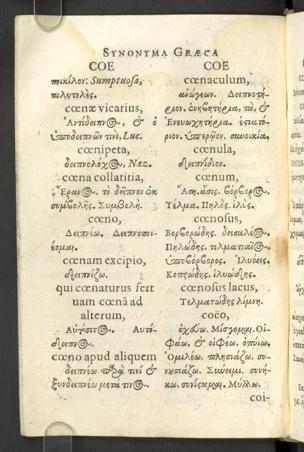 SYNONYMA GRÆCA
COE
ποικίλον: Sumptuosa,
πολυτελὲς.
cœnæ vicarius,
Ἀντίδειπνος, &
ὑποδειπνῶν τινὶ, Luc.
cœnipeta,
δειπνολόχος, Naz.
cœna collatitia,
Ἔρανος. τὸ δεῖπνον ἐκ
συμβολῆς. Συμβολή.
cœno,
Δειπνέω. Δειπνοποι-
έομαι.
cœnam excipio,
δειπνίζω.
qui cœnaturus fert
tuam cœnā ad
alterum,
Αὐτόσιτος. Αυτό-
δειπνος.
cœno apud aliquem
δειπνέω παρὰ τινί &
ξυνδειπνέω μετά τινος.
COE
cœnaculum,
ἀνώγεων. Δειπνητή-
ριον. &
ἑστιατό-
ριον. Ὑπερῷον.
cœnula,
δειπνίδιον.
cœnum,
Ἄση.ἄσις. Βόρβορος.
Τέλμα. Πηλὸς. ἰλύς.
cœnosus,
Βορβορώδης.
Πηλώδης. τελματιαῖος.
ὑποβόρβορος. Ἰλυόεις.
Κοπρώδης. ἰλυώδης.
cœnosus lacus,
Τελματώδης λίμνη.
coëo,
ὀχεύω. Μίσγομαι. Οἰ-
φάω, & οἰφέω. ὀπυίω.
Ὁμιλέω. πλησιάζω. συ-
νουσιάζω. Σύνειμι. συνή-
κω. συνίσταμαι. Μύλλω.
coi-